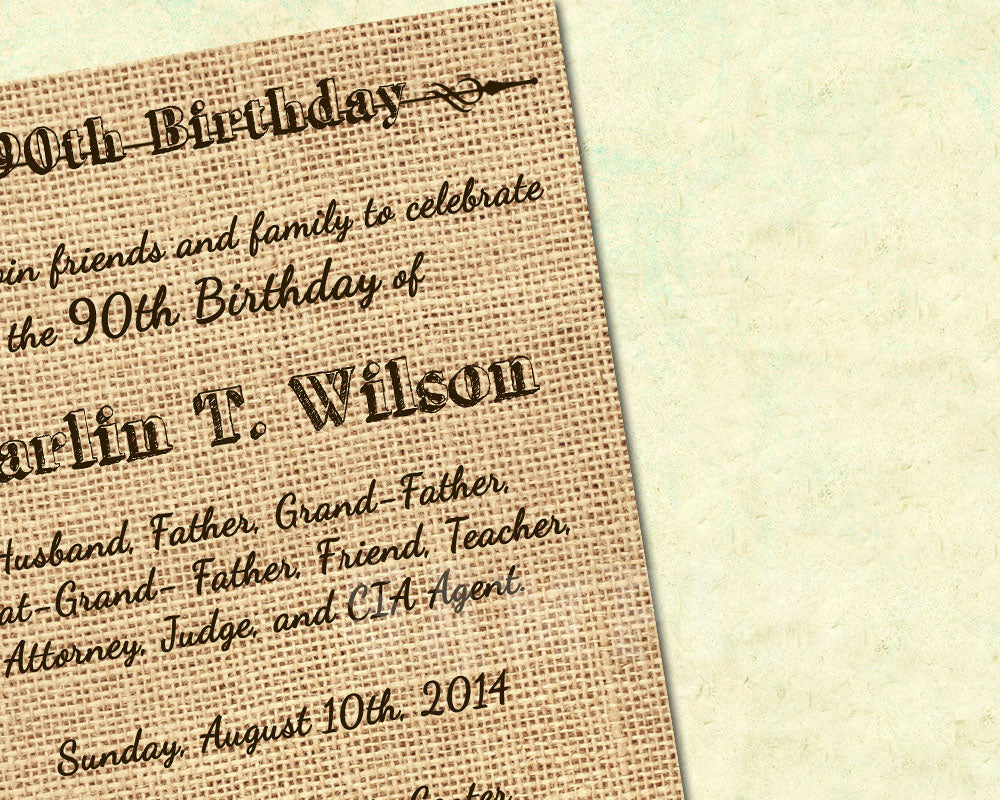 90th Birthday
friends and family to celebrate
the 90th Birthday of
arlin T. Wilson
Husband, Father, Grand-Father,
at-Grand- Father, Friend, Teacher,
Attorney, Judge, and CIA Agent.
Sunday, August 10th, 2014